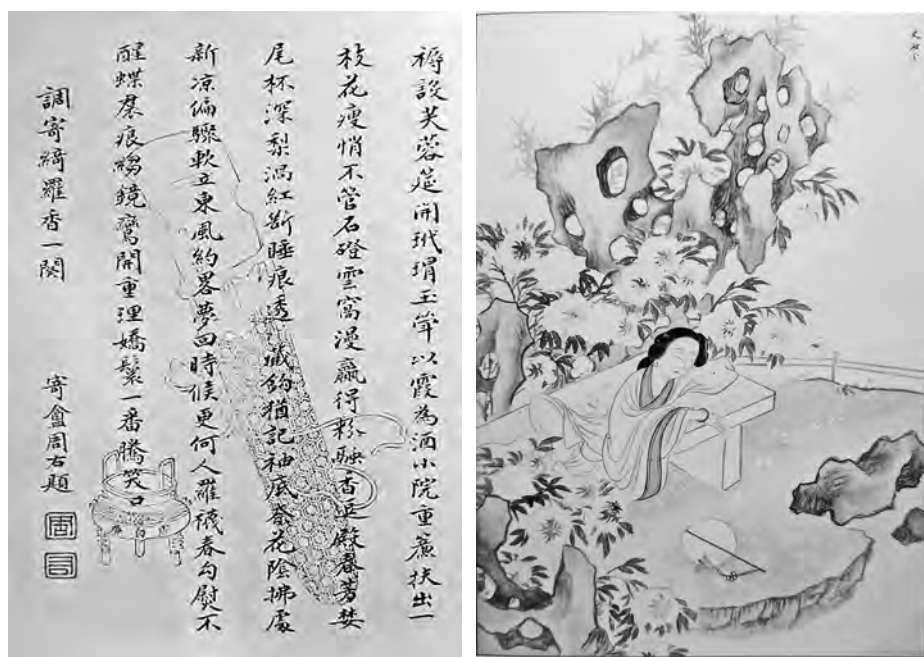 褥設芙蓉筵開玳瑁玉以霞為酒小院重簾扶出一
枝花瘦悄不管石磴雲窩漫贏得粉融香逗殿春芳婪
尾杯深梨渦紅斷睡痕透 藏鈎猶記袖底花陰拂處
新凉偏驟軟立東風約畧夢回時候更何人羅襪春勾熨不
醒蝶裠痕縐鏡鸞開重理嬌鬟一番騰笑口
調寄綺羅香一闋
寄盦周右題